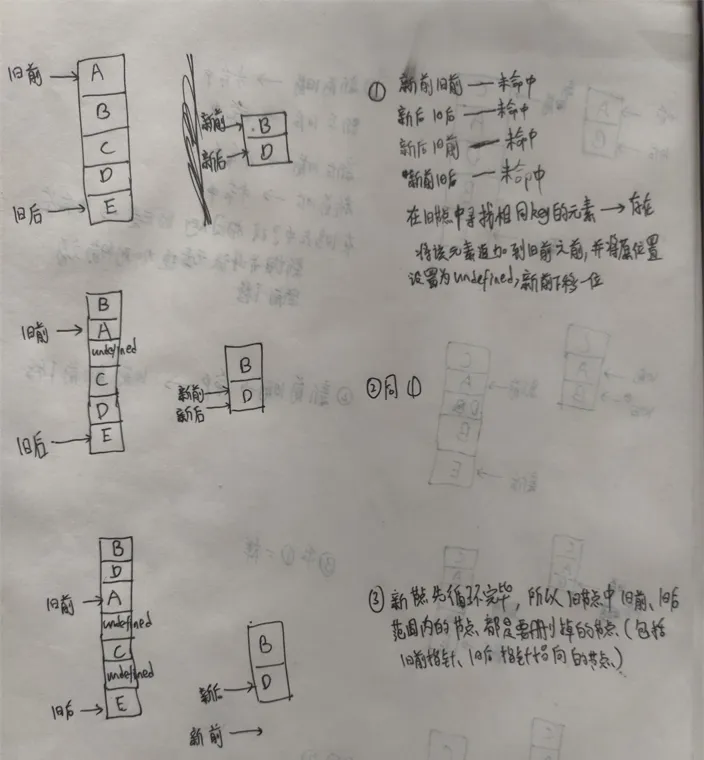 旧前
A
B
C
D
旧后
E
新前
B
新后
D
① 新前旧前 — 未命中
新后旧后 — 未命中
新后旧前 — 未命中
新前旧后 — 未命中
在旧节点中寻找相同key的元素 → 存在
将该元素追加到旧前之前,并将原位置
设置为undefined,新前下移一位
B
旧前
A
undefined
C
D
旧后
E
B
新前
D
新后
② 同①
B
D
旧前
A
undefined
C
undefined
旧后
E
B
新后
D
新前
③ 新节点先循环完毕,所以旧节点中旧前、旧后
范围内的节点都是要删掉的节点(包括
旧前指针、旧后指针指向的节点)